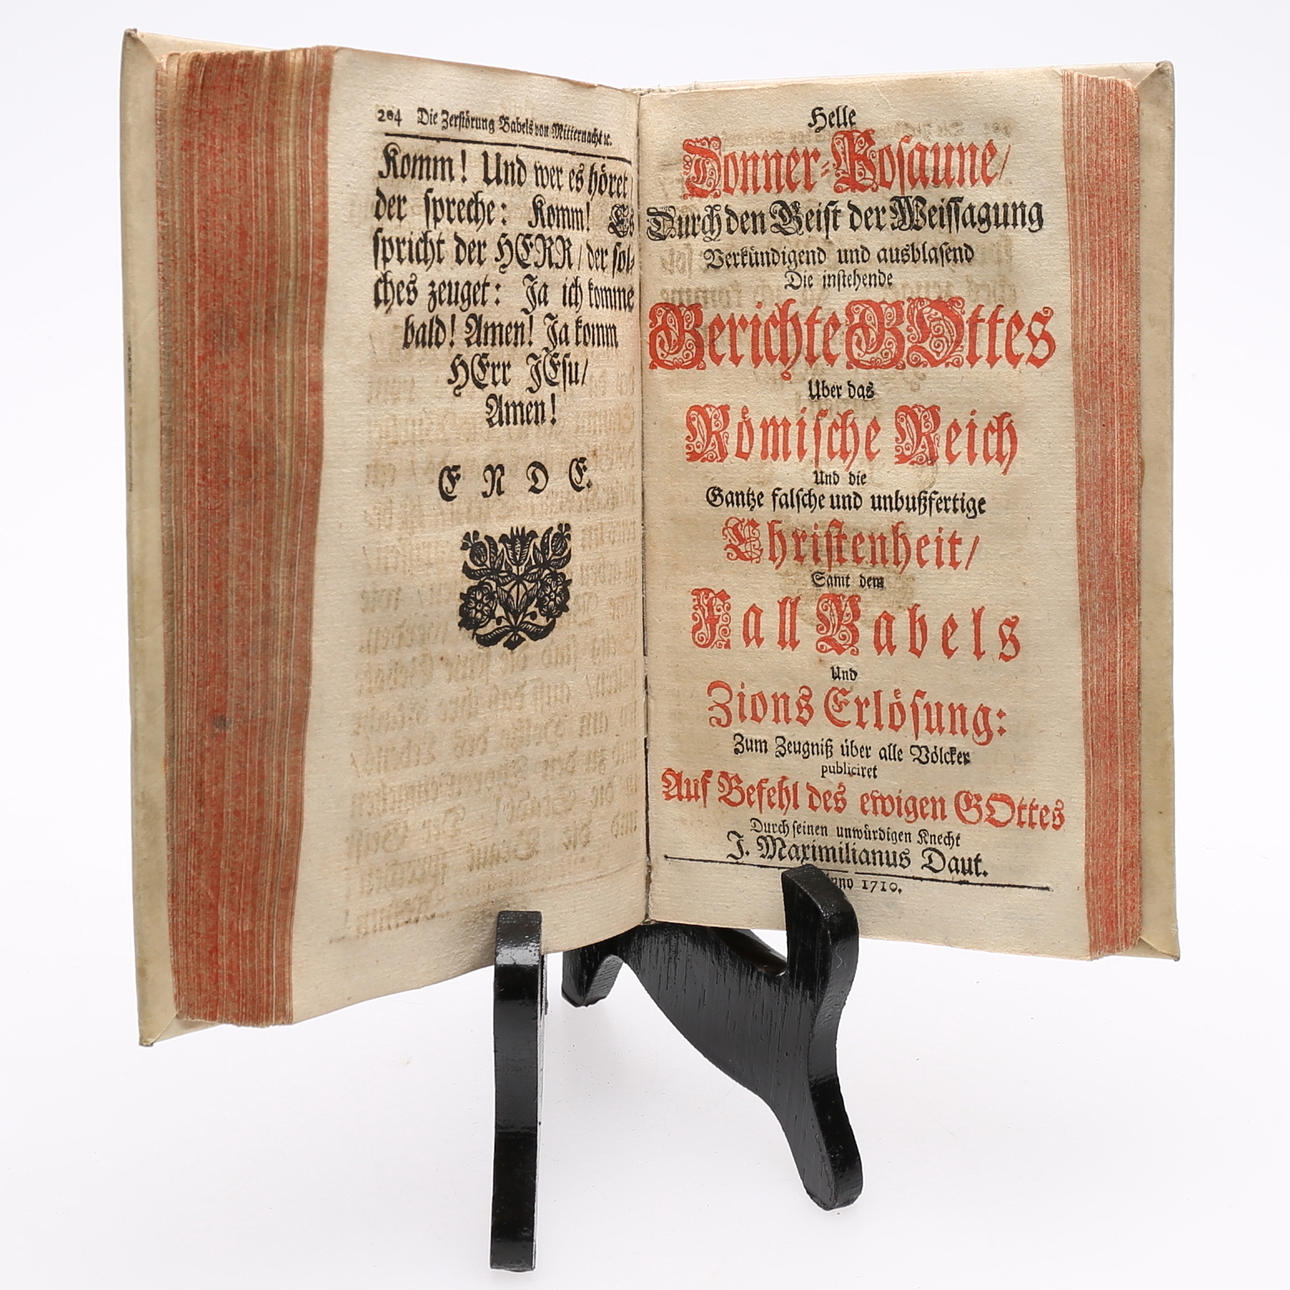 204 Die Zerstörung Babels von Mitternacht ꝛc.
Komm! Und wer es höret/
der spreche: Komm! Es
spricht der HERR/ der sol-
ches zeuget: Ja ich komme
bald! Amen! Ja komm
HErr JEsu/
Amen!
E N D E.
Helle
Donner-Posaune/
Durch den Geist der Weissagung
Verkündigend und ausblasend
Die instehende
Gerichte GOttes
Uber das
Römische Reich
Und die
Gantze falsche und unbußfertige
Christenheit/
Samt dem
Fall Babels
Und
Zions Erlösung:
Zum Zeugniß über alle Völcker
publiciret
Auf Befehl des ewigen GOttes
Durch seinen unwürdigen Knecht
J. Maximilianus Daut.
Anno 1710.